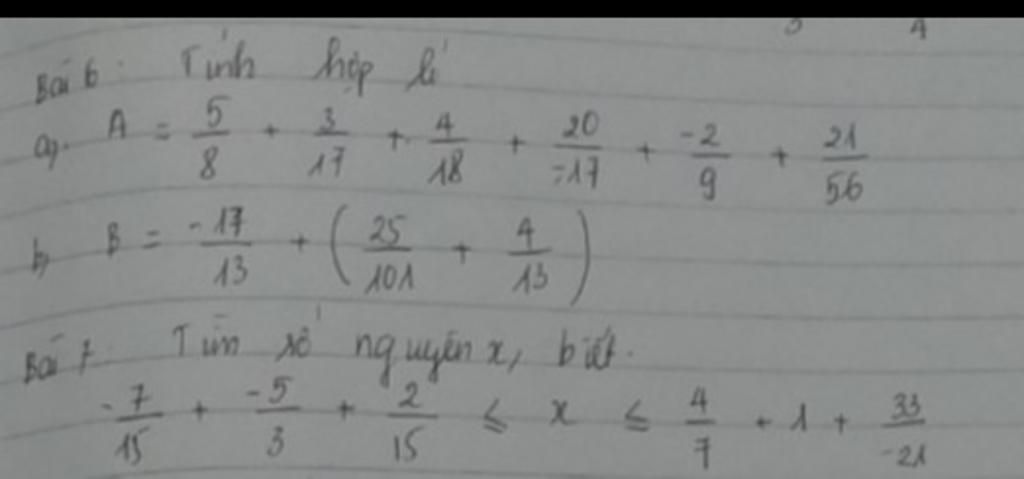 3 4
Bài 6. Tính hợp lí
a). A = 5/8 + 3/17 + 4/18 + 20/-17 + -2/9 + 21/56
b, B = -17/13 + (25/101 + 4/13)
Bài 7. Tìm số nguyên x, biết.
-7/15 + -5/3 + 2/15 ≤ x ≤ 4/7 + 1 + 33/-21